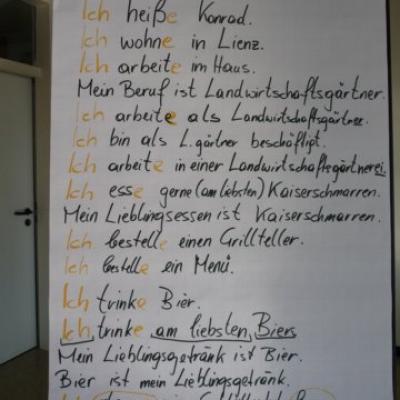 Ich heiße Konrad.
Ich wohne in Lienz.
Ich arbeite im Haus.
Mein Beruf ist Landwirtschaftsgärtner.
Ich arbeite als Landwirtschaftsgärtner.
Ich bin als L.gärtner beschäftigt.
Ich arbeite in einer Landwirtschaftsgärtnerei.
Ich esse gerne (am liebsten) Kaiserschmarren.
Mein Lieblingsessen ist Kaiserschmarren.
Ich bestelle einen Grillteller.
Ich bestelle ein Menü.
Ich trinke Bier.
Ich trinke am liebsten Biers
Mein Lieblingsgetränk ist Bier.
Bier ist mein Lieblingsgetränk.